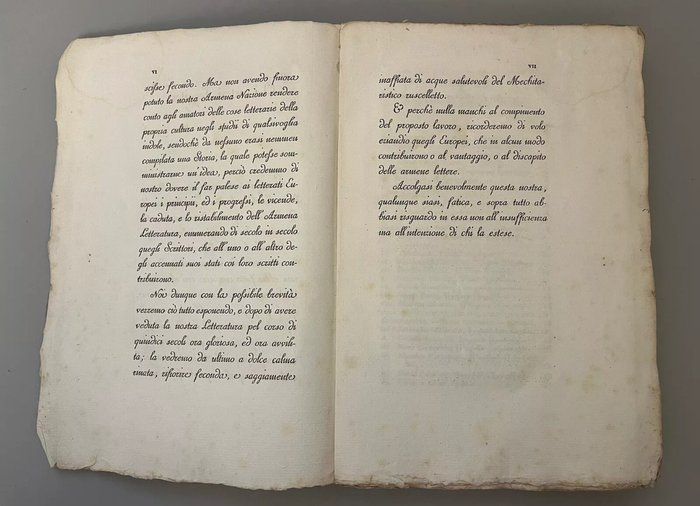 VI
scisse fecondo. Ma non avendo finora
potuto la nostra Armena Nazione rendere
conto agli amatori delle cose letterarie della
propria cultura negli studii di qualsivoglia
indole, sendochè da nessuno erasi nemmen
compilata una Storia, la quale potesse som-
ministrarne un'idea, perciò credemmo di
nostro dovere il far palese ai letterati Eu-
ropei i principii, ed i progressi, le vicende,
la caduta, e lo ristabilmento dell'Armena
Letteratura, enumerando di secolo in secolo
quegli Scrittori, che all'uno o all'altro de-
gli accennati suoi stati coi loro scritti con-
tribuirono.
Noi dunque con la possibile brevità
verremo ciò tutto esponendo, e dopo di avere
veduta la nostra Letteratura pel corso di
quindici secoli ora gloriosa, ed ora avvili-
ta; la vedremo da ultimo a dolce calma
rinata, rifiorire feconda, e saggiamente
VII
inaffiata di acque salutevoli del Mechita-
ristico ruscelletto.
E perchè nulla manchi al compimento
del proposto lavoro, ricorderemo di volo
eziandio quegli Europei, che in alcun modo
contribuirono o al vantaggio, o al discapito
delle armene lettere.
Accolgasi benevolmente questa nostra,
qualunque siasi, fatica, e sopra tutto ab-
biasi risguardo in essa non all'insufficienza
ma all'intenzione di chi la estese.